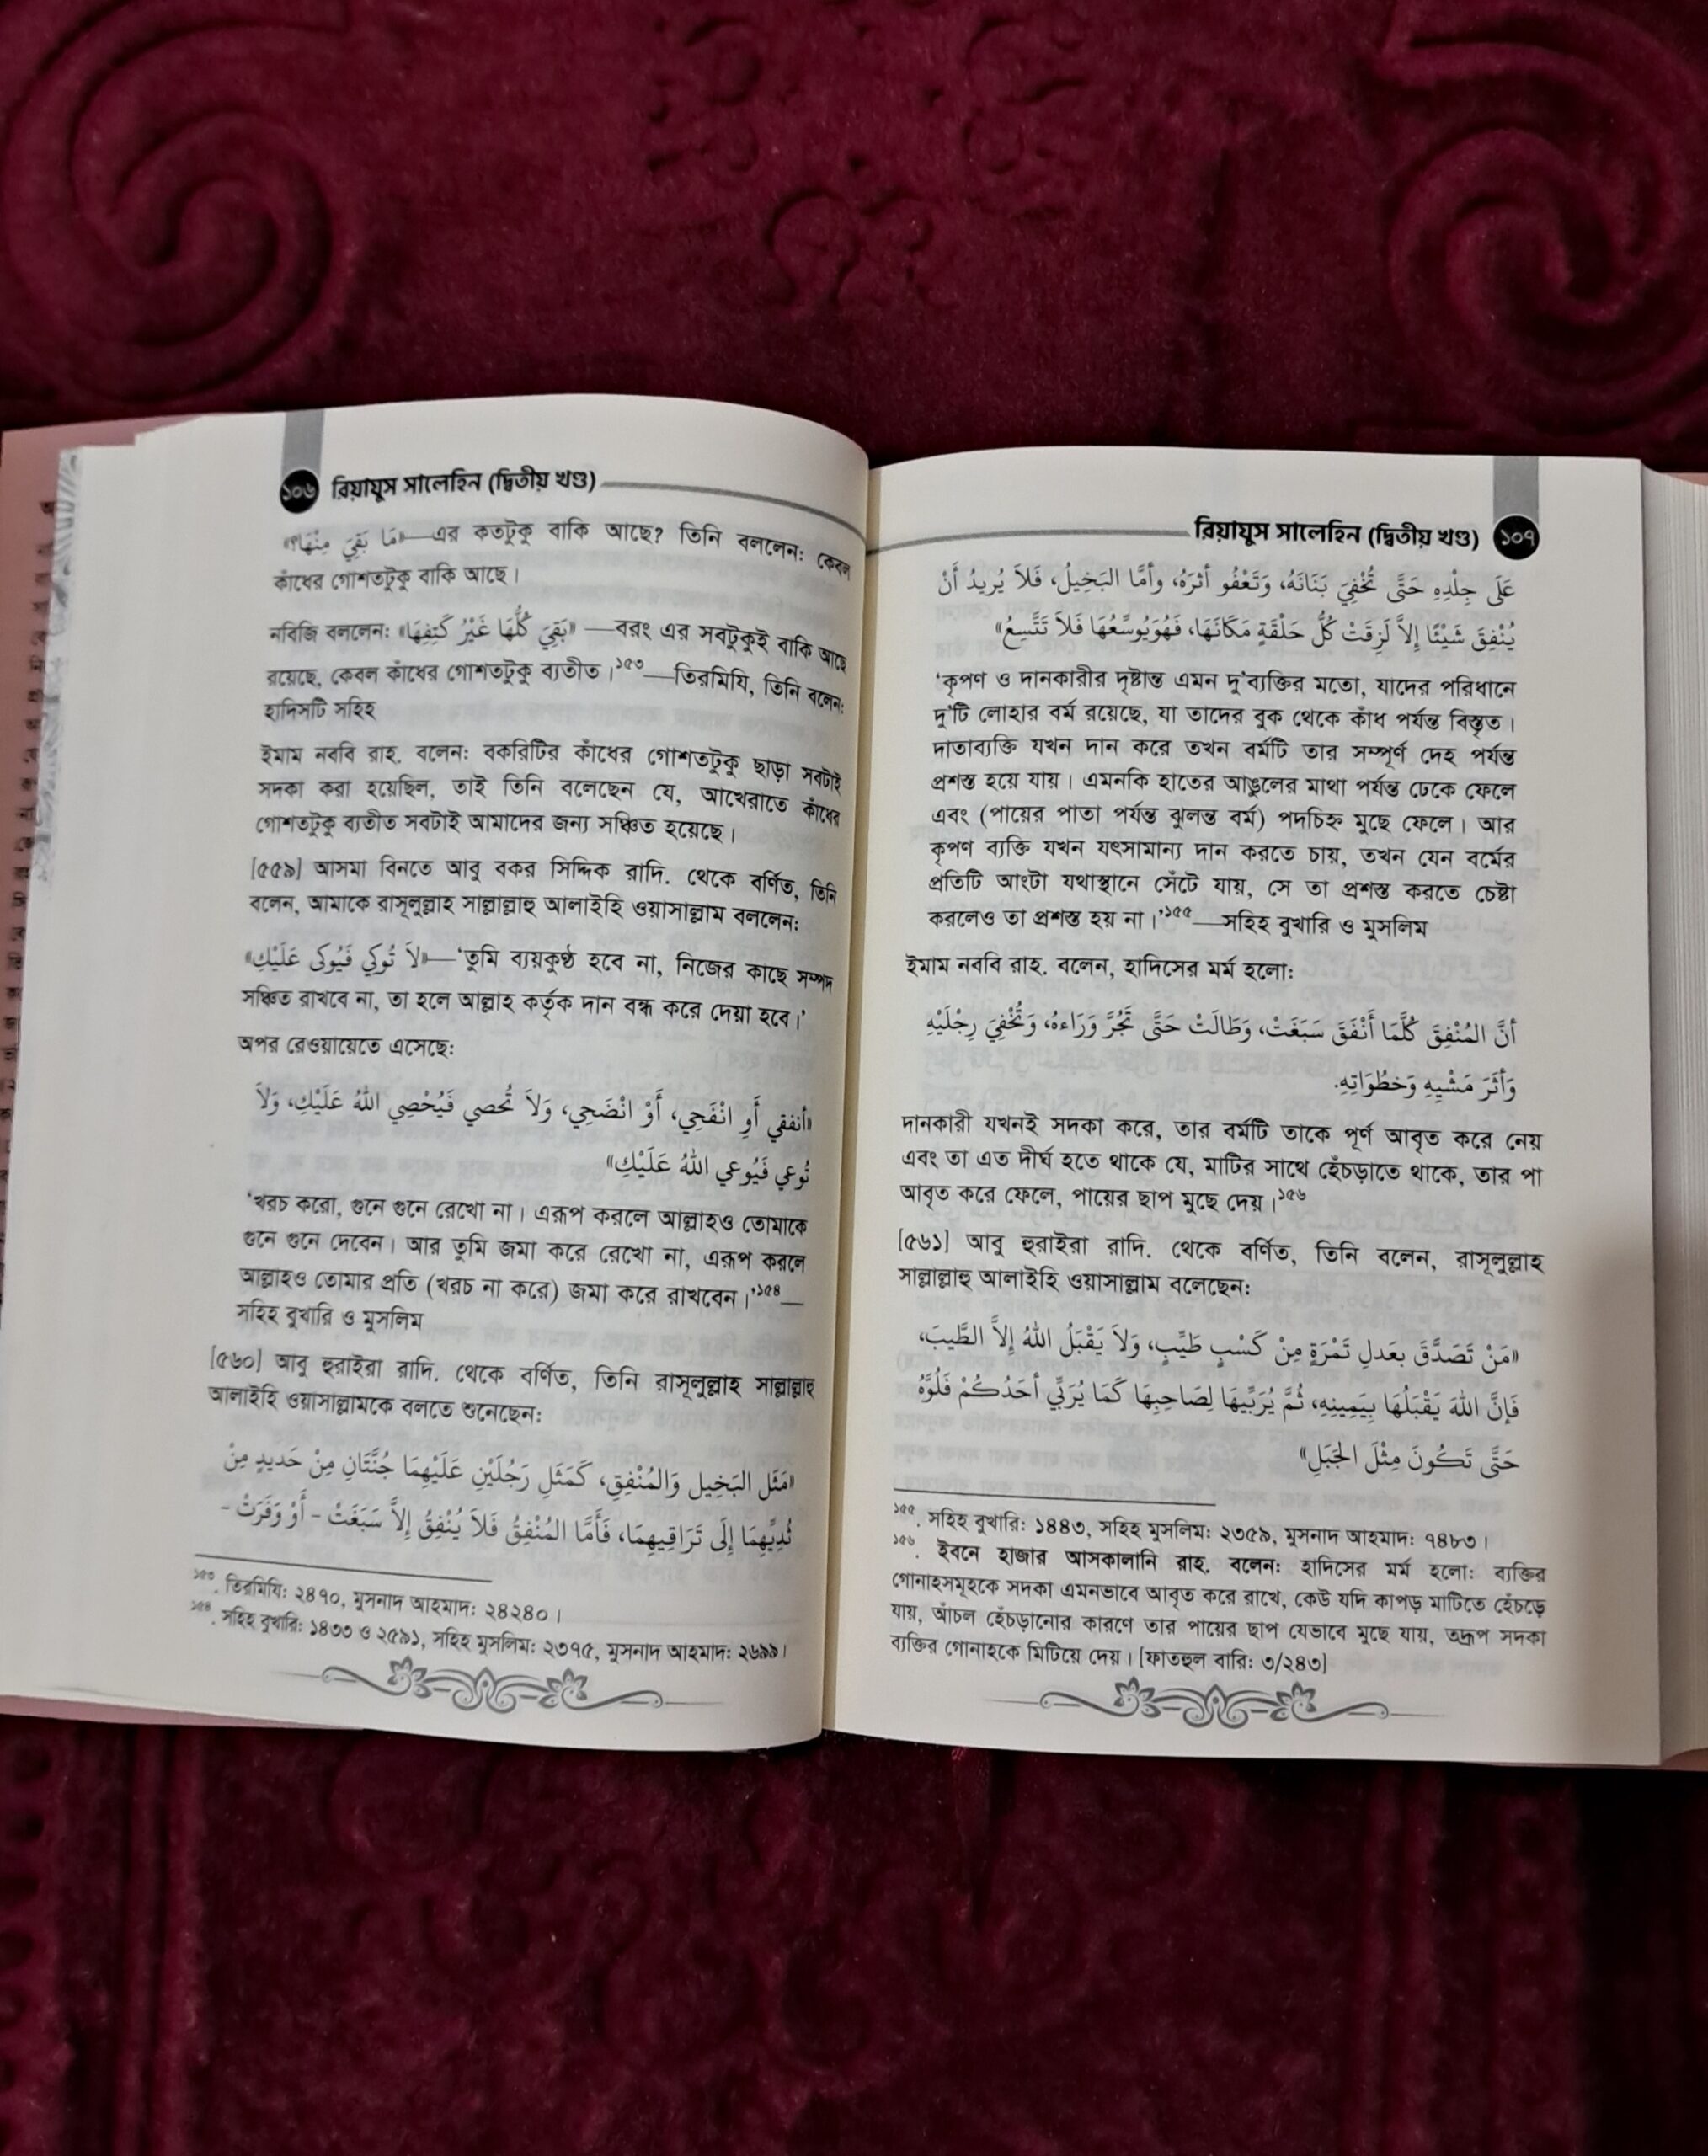 ১০৬ রিয়াযুস সালেহিন (দ্বিতীয় খণ্ড)
«مَا بَقِيَ مِنْهَا؟»—এর কতটুকু বাকি আছে? তিনি বললেন: কেবল
কাঁধের গোশতটুকু বাকি আছে।
নবিজি বললেন: «بَقِيَ كُلُّهَا غَيْرُ كَتِفِهَا» —বরং এর সবটুকুই বাকি আছে
রয়েছে, কেবল কাঁধের গোশতটুকু ব্যতীত।১৫৩—তিরমিযি, তিনি বলেন:
হাদিসটি সহিহ
ইমাম নববি রাহ. বলেন: বকরিটির কাঁধের গোশতটুকু ছাড়া সবটাই
সদকা করা হয়েছিল, তাই তিনি বলেছেন যে, আখেরাতে কাঁধের
গোশতটুকু ব্যতীত সবটাই আমাদের জন্য সঞ্চিত হয়েছে।
[৫৫৯] আসমা বিনতে আবু বকর সিদ্দিক রাদি. থেকে বর্ণিত, তিনি
বলেন, আমাকে রাসূলুল্লাহ সাল্লাল্লাহু আলাইহি ওয়াসাল্লাম বললেন:
«لاَ تُوكِي فَيُوكى عَلَيْكِ»—‘তুমি ব্যয়কুণ্ঠ হবে না, নিজের কাছে সম্পদ
সঞ্চিত রাখবে না, তা হলে আল্লাহ কর্তৃক দান বন্ধ করে দেয়া হবে।’
অপর রেওয়ায়েতে এসেছে:
«أنفقي أَوِ انْفَحِي، أَوْ انْضَحِي، وَلاَ تُحصي فَيُحْصِي اللهُ عَلَيْكِ، وَلاَ
تُوعي فَيُوعي اللهُ عَلَيْكِ»
‘খরচ করো, গুনে গুনে রেখো না। এরূপ করলে আল্লাহও তোমাকে
গুনে গুনে দেবেন। আর তুমি জমা করে রেখো না, এরূপ করলে
আল্লাহও তোমার প্রতি (খরচ না করে) জমা করে রাখবেন।’১৫৪—
সহিহ বুখারি ও মুসলিম
[৫৬০] আবু হুরাইরা রাদি. থেকে বর্ণিত, তিনি রাসূলুল্লাহ সাল্লাল্লাহু
আলাইহি ওয়াসাল্লামকে বলতে শুনেছেন:
«مَثَل البَخِيل وَالمُنْفِقِ، كَمَثَلِ رَجُلَيْنِ عَلَيْهِمَا جُنَّتَانِ مِنْ حَديدٍ مِنْ
ثُدِيِّهِمَا إِلَى تَرَاقِيهِمَا، فَأَمَّا المُنْفِقُ فَلاَ يُنْفِقُ إِلاَّ سَبَغَتْ - أَوْ وَفَرَتْ -
১৫৩. তিরমিযি: ২৪৭০, মুসনাদ আহমাদ: ২৪২৪০।
১৫৪. সহিহ বুখারি: ১৪৩৩ ও ২৫৯১, সহিহ মুসলিম: ২৩৭৫, মুসনাদ আহমাদ: ২৬৯৯।
রিয়াযুস সালেহিন (দ্বিতীয় খণ্ড) ১০৭
عَلَى جِلْدِهِ حَتَّى تُخْفِيَ بَنَانَهُ، وَتَعْفُو أثرَهُ، وأمَّا البَخِيلُ، فَلاَ يُريدُ أنْ
يُنْفِقَ شَيْئًا إِلاَّ لَزِقَتْ كُلُّ حَلْقَةٍ مَكَانَهَا، فَهُوَيُوسِّعُهَا فَلاَ تَتَّسِعُ»
‘কৃপণ ও দানকারীর দৃষ্টান্ত এমন দু’ব্যক্তির মতো, যাদের পরিধানে
দু’টি লোহার বর্ম রয়েছে, যা তাদের বুক থেকে কাঁধ পর্যন্ত বিস্তৃত।
দাতাব্যক্তি যখন দান করে তখন বর্মটি তার সম্পূর্ণ দেহ পর্যন্ত
প্রশস্ত হয়ে যায়। এমনকি হাতের আঙুলের মাথা পর্যন্ত ঢেকে ফেলে
এবং (পায়ের পাতা পর্যন্ত ঝুলন্ত বর্ম) পদচিহ্ন মুছে ফেলে। আর
কৃপণ ব্যক্তি যখন যৎসামান্য দান করতে চায়, তখন যেন বর্মের
প্রতিটি আংটা যথাস্থানে সেঁটে যায়, সে তা প্রশস্ত করতে চেষ্টা
করলেও তা প্রশস্ত হয় না।’১৫৫—সহিহ বুখারি ও মুসলিম
ইমাম নববি রাহ. বলেন, হাদিসের মর্ম হলো:
أنَّ المُنْفِقَ كُلَّمَا أَنْفَقَ سَبَغَتْ، وَطَالَتْ حَتَّى تَجُرَّ وَرَاءَهُ، وَتُخْفِيَ رِجْلَيْهِ
وَأثَرَ مَشْيِهِ وَخطُوَاتِهِ.
দানকারী যখনই সদকা করে, তার বর্মটি তাকে পূর্ণ আবৃত করে নেয়
এবং তা এত দীর্ঘ হতে থাকে যে, মাটির সাথে হেঁচড়াতে থাকে, তার পা
আবৃত করে ফেলে, পায়ের ছাপ মুছে দেয়।১৫৬
[৫৬১] আবু হুরাইরা রাদি. থেকে বর্ণিত, তিনি বলেন, রাসূলুল্লাহ
সাল্লাল্লাহু আলাইহি ওয়াসাল্লাম বলেছেন:
«مَنْ تَصَدَّقَ بعَدلِ تَمْرَةٍ مِنْ كَسْبٍ طَيِّبٍ، وَلاَ يَقْبَلُ اللهُ إِلاَّ الطَّيبَ،
فَإِنَّ اللهَ يَقْبَلُهَا بِيَمِينِهِ، ثُمَّ يُرَبِّيهَا لِصَاحِبِهَا كَمَا يُرَبِّي أحَدُكُمْ فَلُوَّهُ
حَتَّى تَكُونَ مِثْلَ الجَبَلِ»
১৫৫. সহিহ বুখারি: ১৪৪৩, সহিহ মুসলিম: ২৩৫৯, মুসনাদ আহমাদ: ৭৪৮৩।
১৫৬. ইবনে হাজার আসকালানি রাহ. বলেন: হাদিসের মর্ম হলো: ব্যক্তির
গোনাহসমূহকে সদকা এমনভাবে আবৃত করে রাখে, কেউ যদি কাপড় মাটিতে হেঁচড়ে
যায়, আঁচল হেঁচড়ানোর কারণে তার পায়ের ছাপ যেভাবে মুছে যায়, তদ্রূপ সদকা
ব্যক্তির গোনাহকে মিটিয়ে দেয়। [ফাতহুল বারি: ৩/২৪৩]